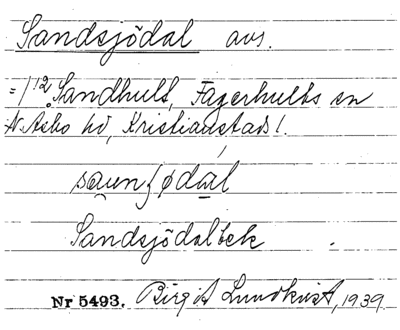 Sandsjödal avs.
= 1/12 Sandhult, Fagerhults sn
N. Åsbo hd, Kristianstads l.
saunʃødal
Sandsjödalbek
Nr 5493. Birgit Lundkvist, 1939.